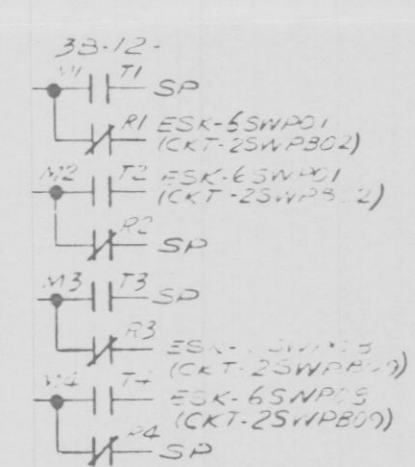 3B-12-
M1 T1 SP
R1 ESK-6SWP01
(CKT-2SWPB02)
M2 T2 ESK-6SWP01
(CKT-2SWPB02)
R2 SP
M3 T3 SP
R3 ESK-
(CKT-2SWPB09)
M4 T4 ESK-6SWP09
(CKT-2SWPB09)
R4 SP